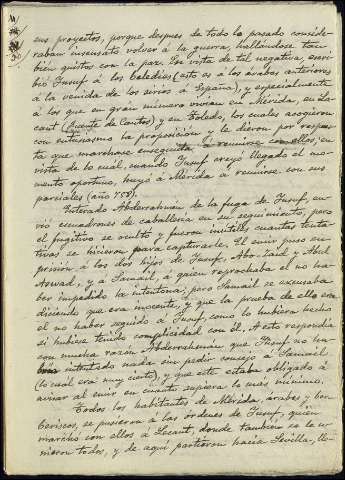 sus proyectos, porque despues de todo lo pasado conside-
raban insensato volver á la guerra, hallándose tan
bien quistos con la paz. En vista de tal negativa, escri-
bió Yusuf á los Beledies (esto es á los árabes anteriores
á la venida de los sirios á España), y especialmente
á los que en gran número vivian en Mérida, en La-
cant (Fuente de Cantos) y en Toledo, los cuales acogieron
con entusiasmo la proposición y le dieron por respues-
ta que marchase enseguida á reunirse con ellos; en
vista de lo cual, cuando Yusuf creyó llegado el mo-
mento oportuno, huyó á Mérida á reunirse con sus
parciales (año 758).
Enterado Abderrahmán de la fuga de Yusuf, en-
vió escuadrones de caballería en su seguimiento, pero
el fugitivo se ocultó y fueron inutiles cuantas tenta-
tivas se hicieron para capturarle. El emir puso en
prisión á los dos hijos de Yusuf, Abo-Zaid y Abul
Aswad, y á Samail, á quien reprochaba el no ha-
ber impedido la intentona; pero Samail se excusaba
diciendo que era inocente, y que la prueba de ello era
el no haber seguido á Yusuf, como lo hubiera hecho
si hubiese tenido complicidad con él. A esto respondia
con mucha razon Abderrahmán que Yusuf no ha-
bia intentado nada sin pedir consejo á Samail
(lo cual era muy cierto), y que este estaba obligado á
avisar al emir en cuanto supiera lo mas minimo.
Todos los habitantes de Mérida, árabes y ber-
beriscos, se pusieron á las órdenes de Yusuf, quien
marchó con ellos á Lacant, donde tambien se le u-
nieron todos, y de aquí partieron hacia Sevilla, lle-